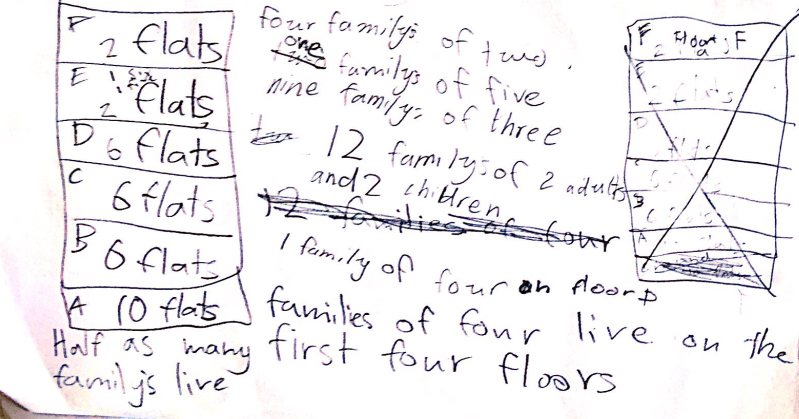 F 2 flats
E 2 flats
D 6 flats
C 6 flats
B 6 flats
A 10 flats
Half as many
familys live
four familys of two.
one familys of five
nine familys of three
12 familys of 2 adults
and 2 children
12 families of four
1 family of four on floor D
families of four live on the
first four floors
F 2 flats
E 2 flats
D
flats
C
B
A